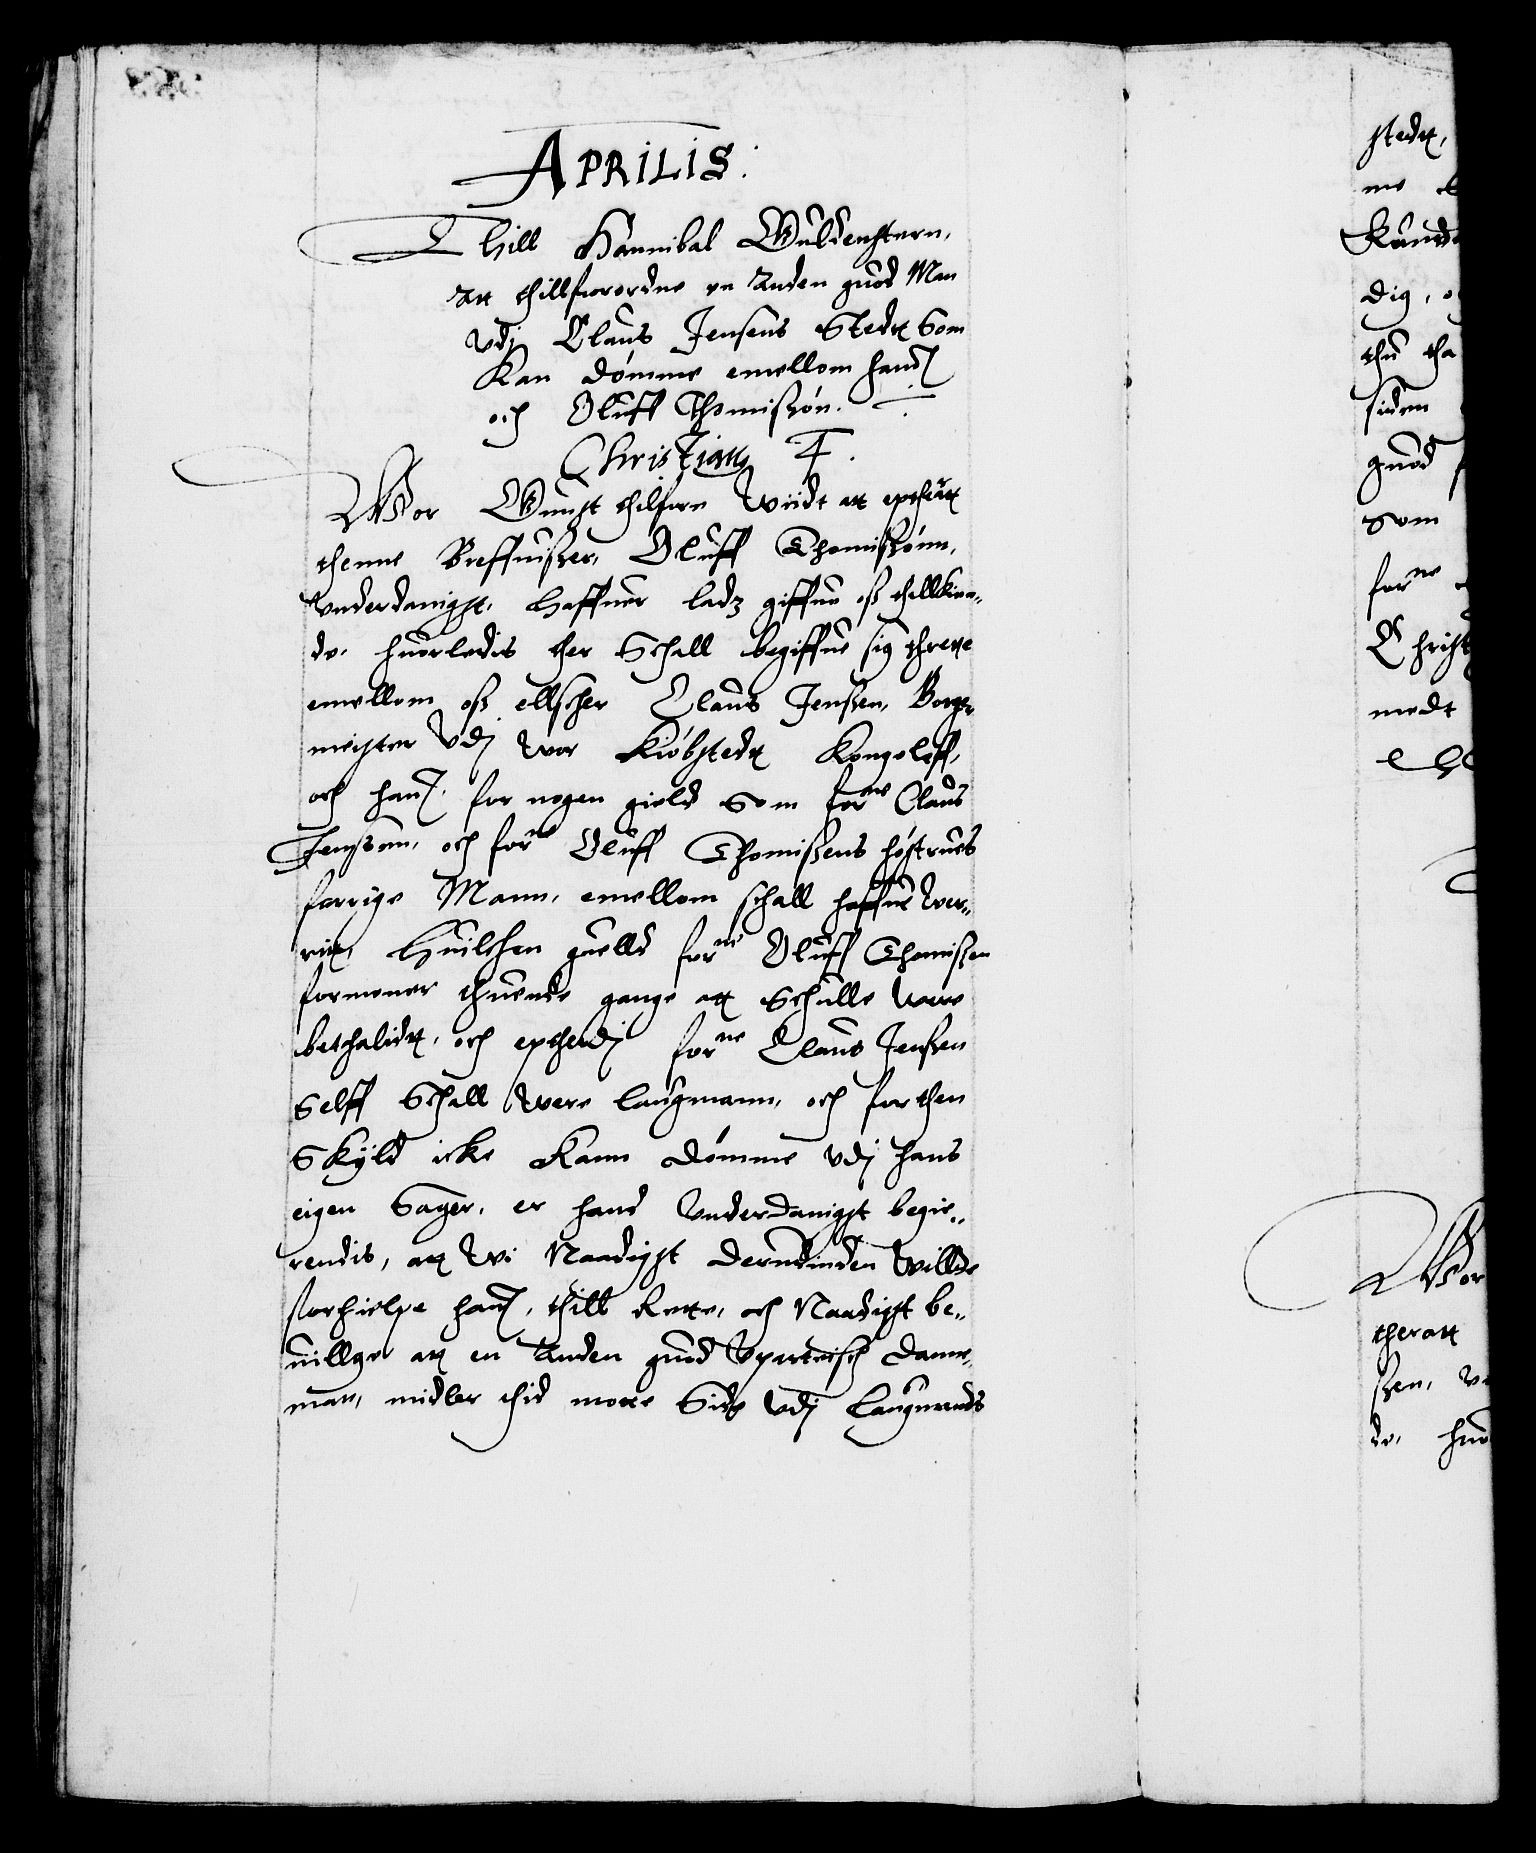 APRILIS.
Thill Hannibal Guldenstern,
att thillforordne en Anden guod Man
vdj Claus Jensens Stedt Som
Kan dómme emellom hand
och Oluff Thomiszón.
Christian 4.
Wor Gunst thilforn Wiidt att epthertt
thenne Breffuiszer, Oluff Thomiszónn,
Vnderdanigst, haffuer ladz giffue osz thillkien,,
de, huorledis ther Schall begiffue sig thrette
emellom osz ellscher Claus Jenszen, Borge
meister Vdj wor Kióbstedt Kongeleff,
och hand, for nogen gield Som forne Claus
Jenszen, och forne Oluff Thomiszens hóstrues
forrige Mann, emellom schall haffue wer,,
ritt, Huilchen gield forne Oluff Thomiszen
formener thuende gange att Schulle were
bethalidt, och eptherdj forne Claus Jenszen
Selff Schall were laugmann, och for then
Skyld icke Kann dómme vdj hans
eigen Sager, er hand Vnderdanigst begie,,
rendis, att wi Naadigst derudinden wille
forhielpe hand, thill Rette, och Naadigst be,,
uillge att en Anden guod Vparteisch danne,
man, midler thid motte Side Vdj Laugmands
stedt,
me
Kand
dig, o
thu tha
siden
guod
som
forne
Christ
medt
Wor
theratt
szen, v
de, huo